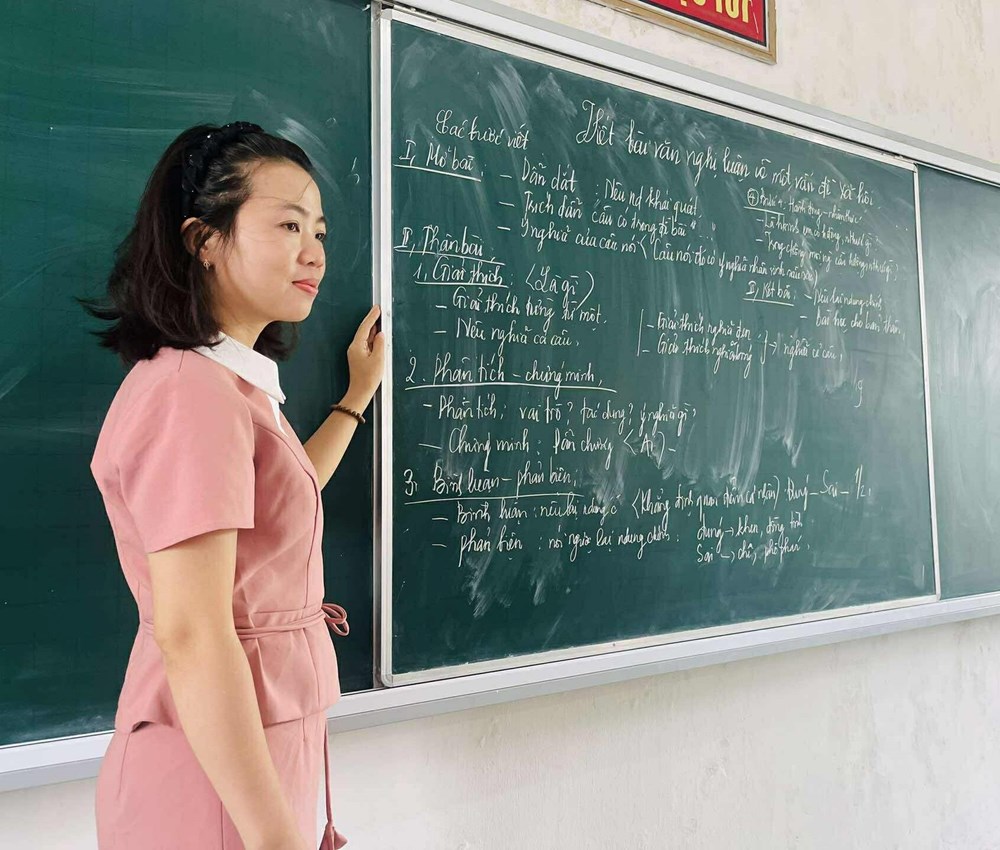 Viết bài văn nghị luận về một vấn đề xã hội
Các bước viết
I, Mở bài:
- Dẫn dắt : Nêu nd khái quát.
- Trích dẫn "câu có trong đề bài"
- Ý nghĩa của câu nói (Câu nói đó có ý nghĩa nhân sinh sâu sắc)
II, Thân bài
1, Giải thích (Là gì)
- Giải thích từng từ một.
- Nêu nghĩa cả câu.
- Giải thích nghĩa đen
- Giải thích nghĩa bóng
→ nghĩa cả câu.
2. Phân tích - chứng minh.
- Phân tích: vai trò? tác dụng? ý nghĩa gì?
- Chứng minh: Dẫn chứng (Ai) -
3, Bình luận - phản biện.
- Bình luận : nêu lại ndung c (Khẳng định quan điểm cá nhân) Đúng - Sai - 1/2.
- phản biện : nói ngược lại ndung chính: đúng → khen, đồng tình
Sai → chê, phê phán.
4 - Hành động - nhận thức
- Là h/sinh em có
III, Kết bài: - Nêu lại ndung chính
- bài học cho bản thân